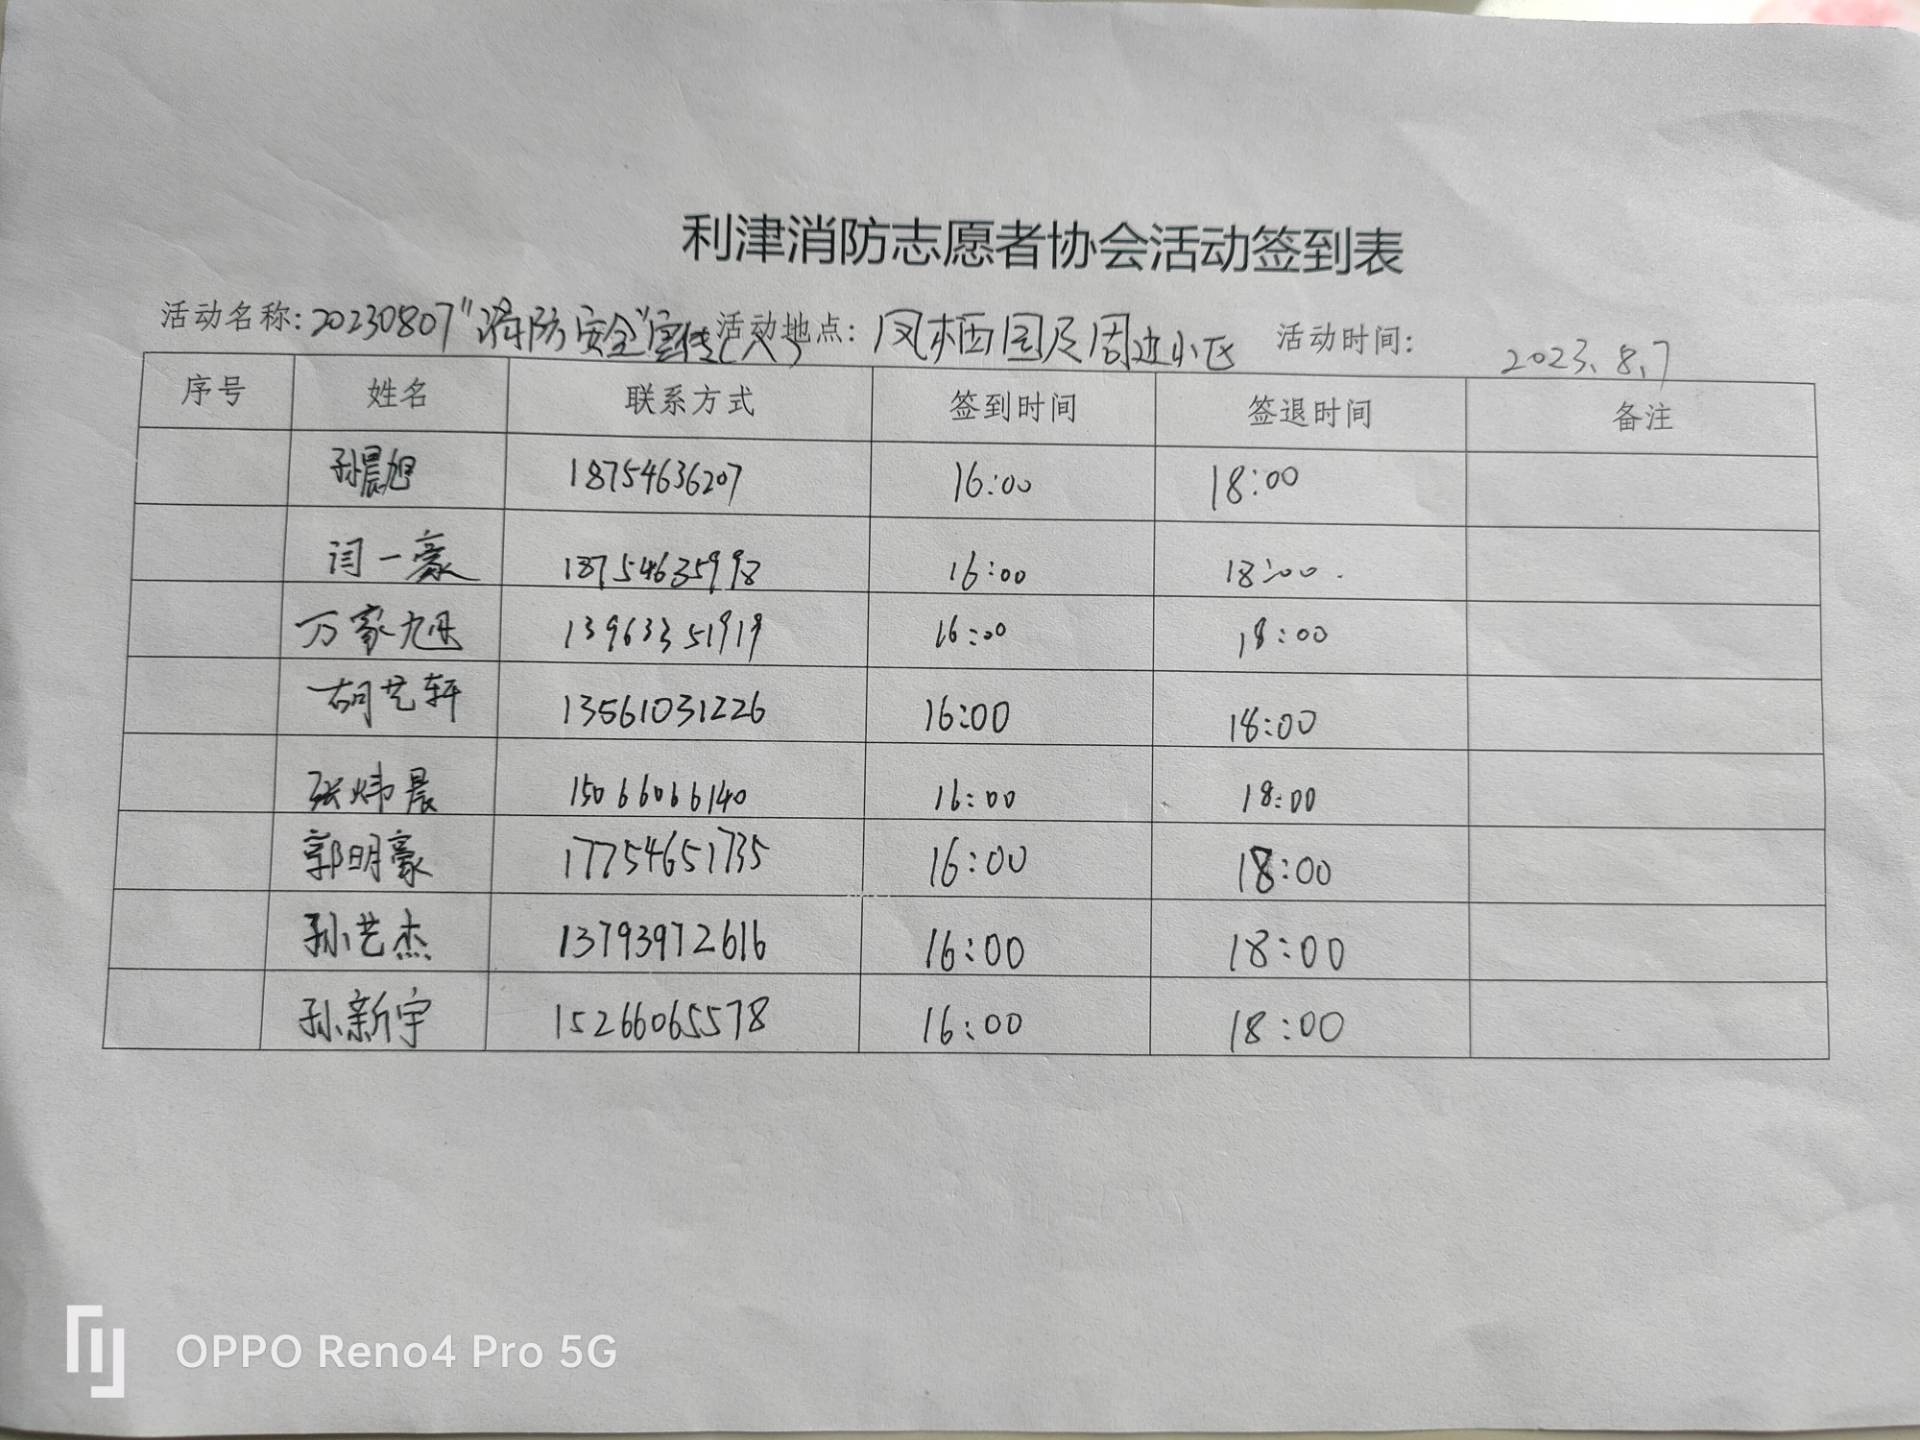 利津消防志愿者协会活动签到表
活动名称:20230807"消防安全"宣传(八) 活动地点:凤栖园及周边小区 活动时间: 2023.8.7
序号 姓名 联系方式 签到时间 签退时间 备注
孙晨旭 18754636207 16:00 18:00
闫一豪 18754635998 16:00 18:00
万家旭 13963351919 16:00 18:00
胡艺轩 13561031226 16:00 18:00
张炜晨 15066066140 16:00 18:00
郭明豪 17754651735 16:00 18:00
孙艺杰 13793972616 16:00 18:00
孙新宇 15266065578 16:00 18:00
OPPO Reno4 Pro 5G